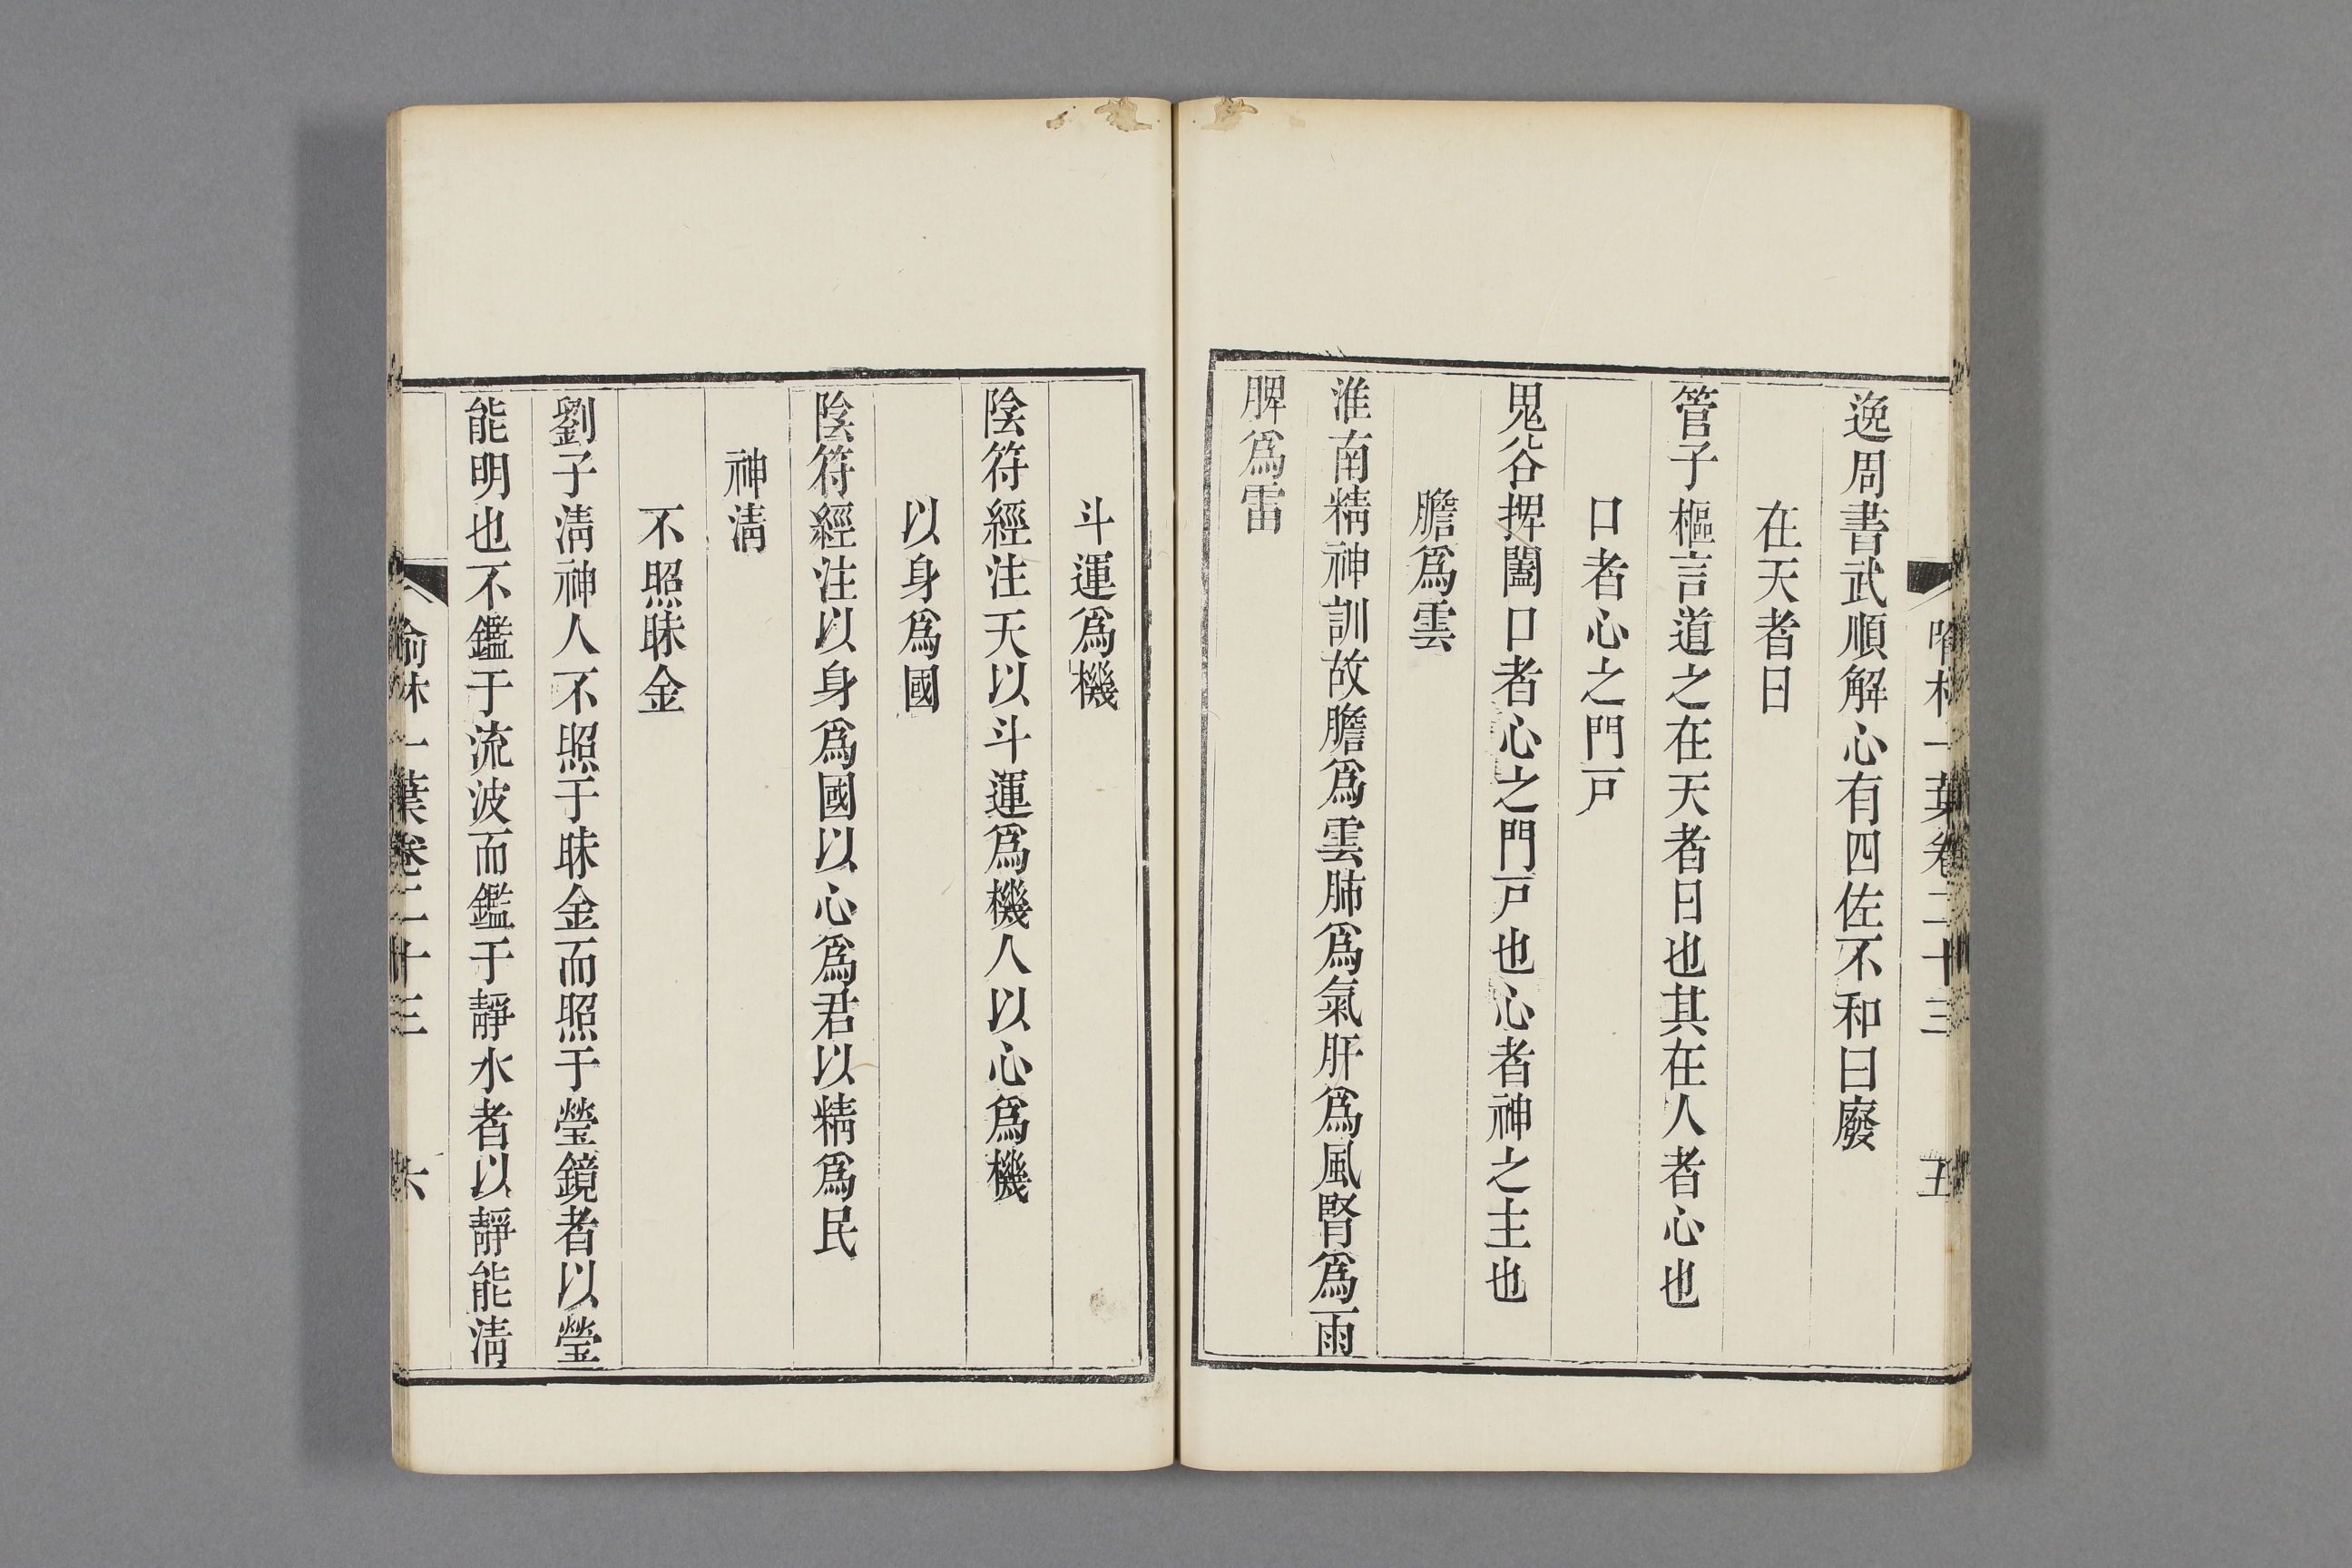 逸周書武順解心有四佐不和曰廢
在天者日
管子樞言道之在天者日也其在人者心也
口者心之門戸
鬼谷捭闔口者心之門戸也心者神之主也
膽爲雲
淮南精神訓故膽爲雲肺爲氣肝爲風腎爲雨
脾爲雷
斗運爲機
陰符經注天以斗運爲機人以心爲機
以身爲國
陰符經注以身爲國以心爲君以精爲民
神淸
不照昧金
劉子淸神人不照于昧金而照于瑩鏡者以瑩
能明也不鑑于流波而鑑于靜水者以靜能淸
喻林一葉卷二十三 六
喻林一葉卷二十三 五